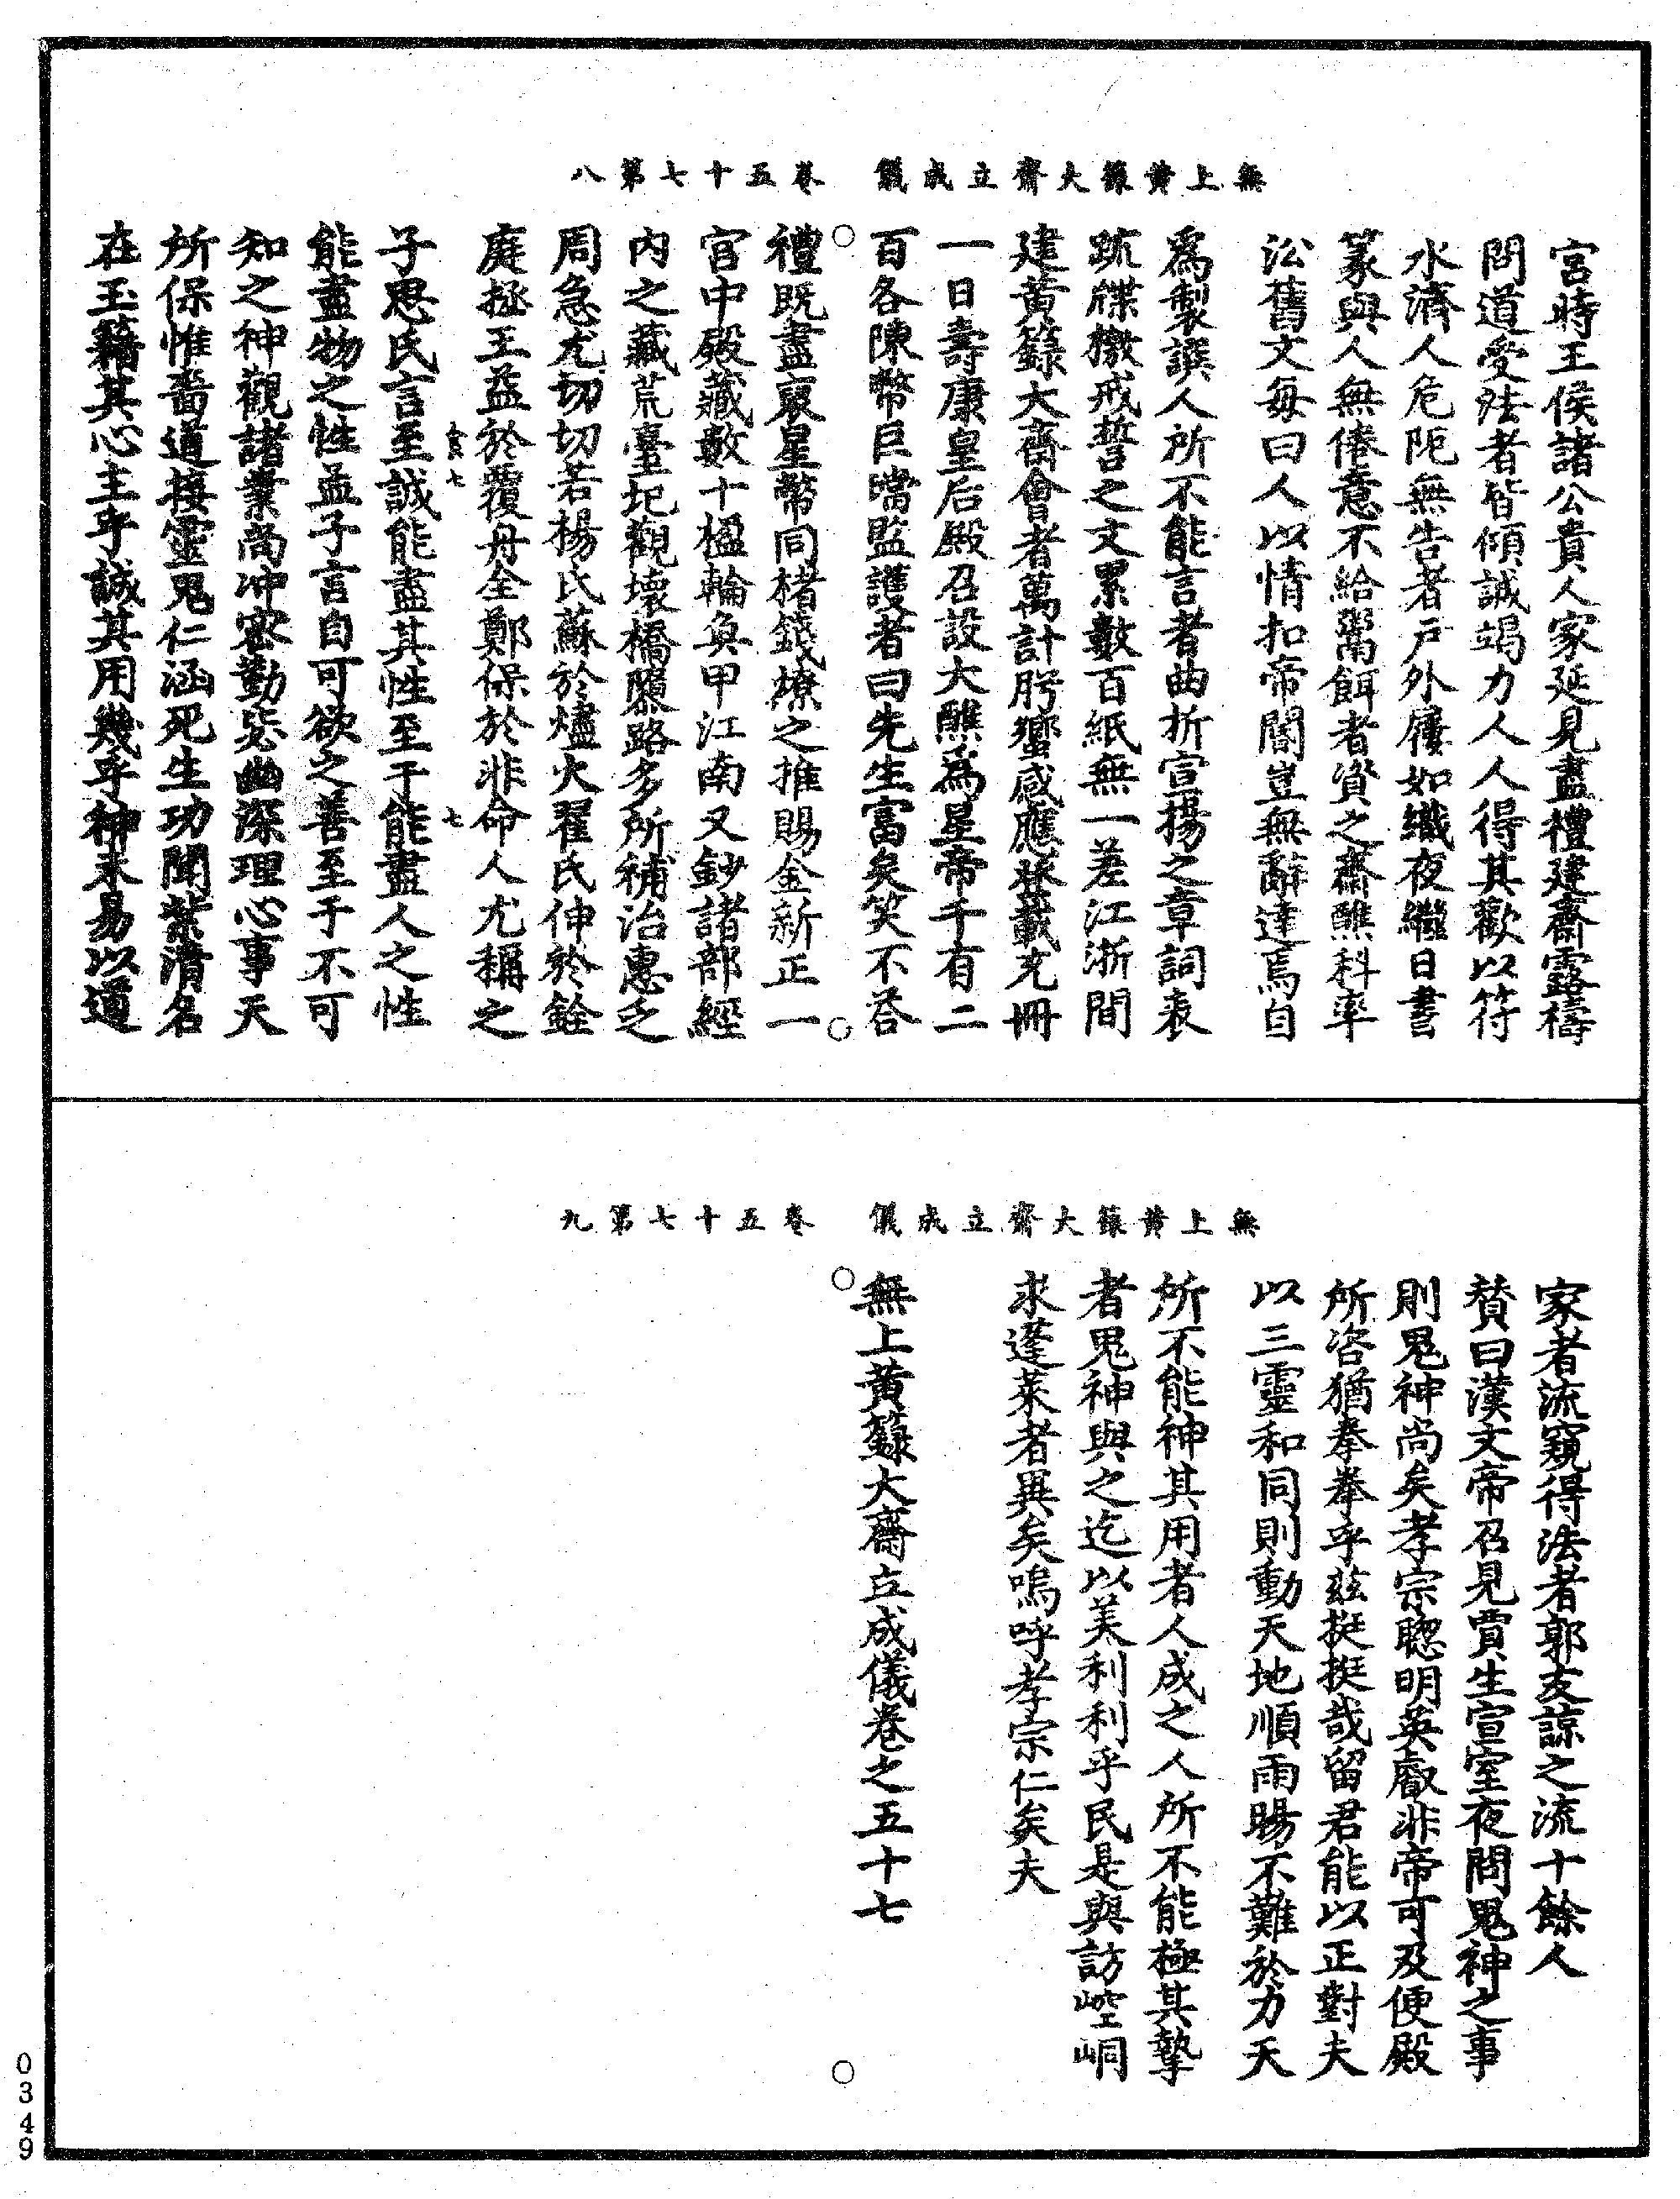 無上黃籙大齋立成儀　卷五十七第八
宮時王侯諸公貴人家延見盡禮建齋露禱
問道受法者皆傾誠竭力人人得其歡以符
水濟人危阨無告者戶外屨如織夜繼日書
篆與人無倦意不給粥餌者資之齋醮科率
㳂舊文每曰人以情扣帝閽豈無辭達焉自
為製譔人所不能言者曲折宣揚之章詞表
疏牒檄戒誓之文累數百紙無一差江浙間
建黃籙大齋會者萬計肹蠁感應殊載充冊
一日壽康皇后殿召設大醮為星帝千有二
百各陳幣巨璫監護者曰先生富矣笑不荅
禮既盡裒星幣同楮錢燎之推賜金新正一
宮中殿藏數十楹輪奐甲江南又鈔諸部經
內之藏荒臺圮觀壞橋隳路多所補治惠乏
周急尤切切若楊氏蘇於燼火翟氏伸於銓
庭拯王益於覆舟全鄭保於非命人尤稱之
子思氏言至誠能盡其性至于能盡人之性
食七
七
能盡物之性孟子言自可欲之善至于不可
知之神觀諸業尚冲密勤毖幽深理心事天
所保惟嗇道接靈鬼仁涵死生功聞紫清名
在玉籍其心主乎誠其用幾乎神未易以道
無上黃籙大齋立成儀　卷五十七第九
家者流窺得法者郭友諒之流十餘人
贊曰漢文帝召見賈生宣室夜問鬼神之事
則鬼神尚矣孝宗聰明英叡非帝可及便殿
所咨猶拳拳乎茲挺挺哉留君能以正對夫
以三靈和同則動天地順雨暘不難於力天
所不能神其用者人成之人所不能極其摯
者鬼神與之迄以美利利乎民是與訪崆峒
求蓬萊者異矣嗚呼孝宗仁矣夫
無上黃籙大齋立成儀卷之五十七
0349